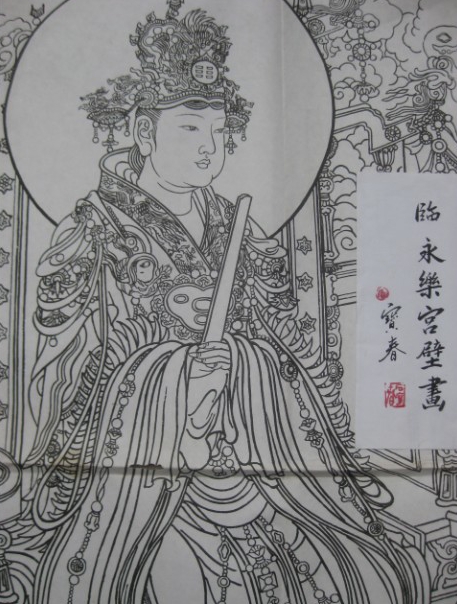 臨永樂宮壁畫
寶春